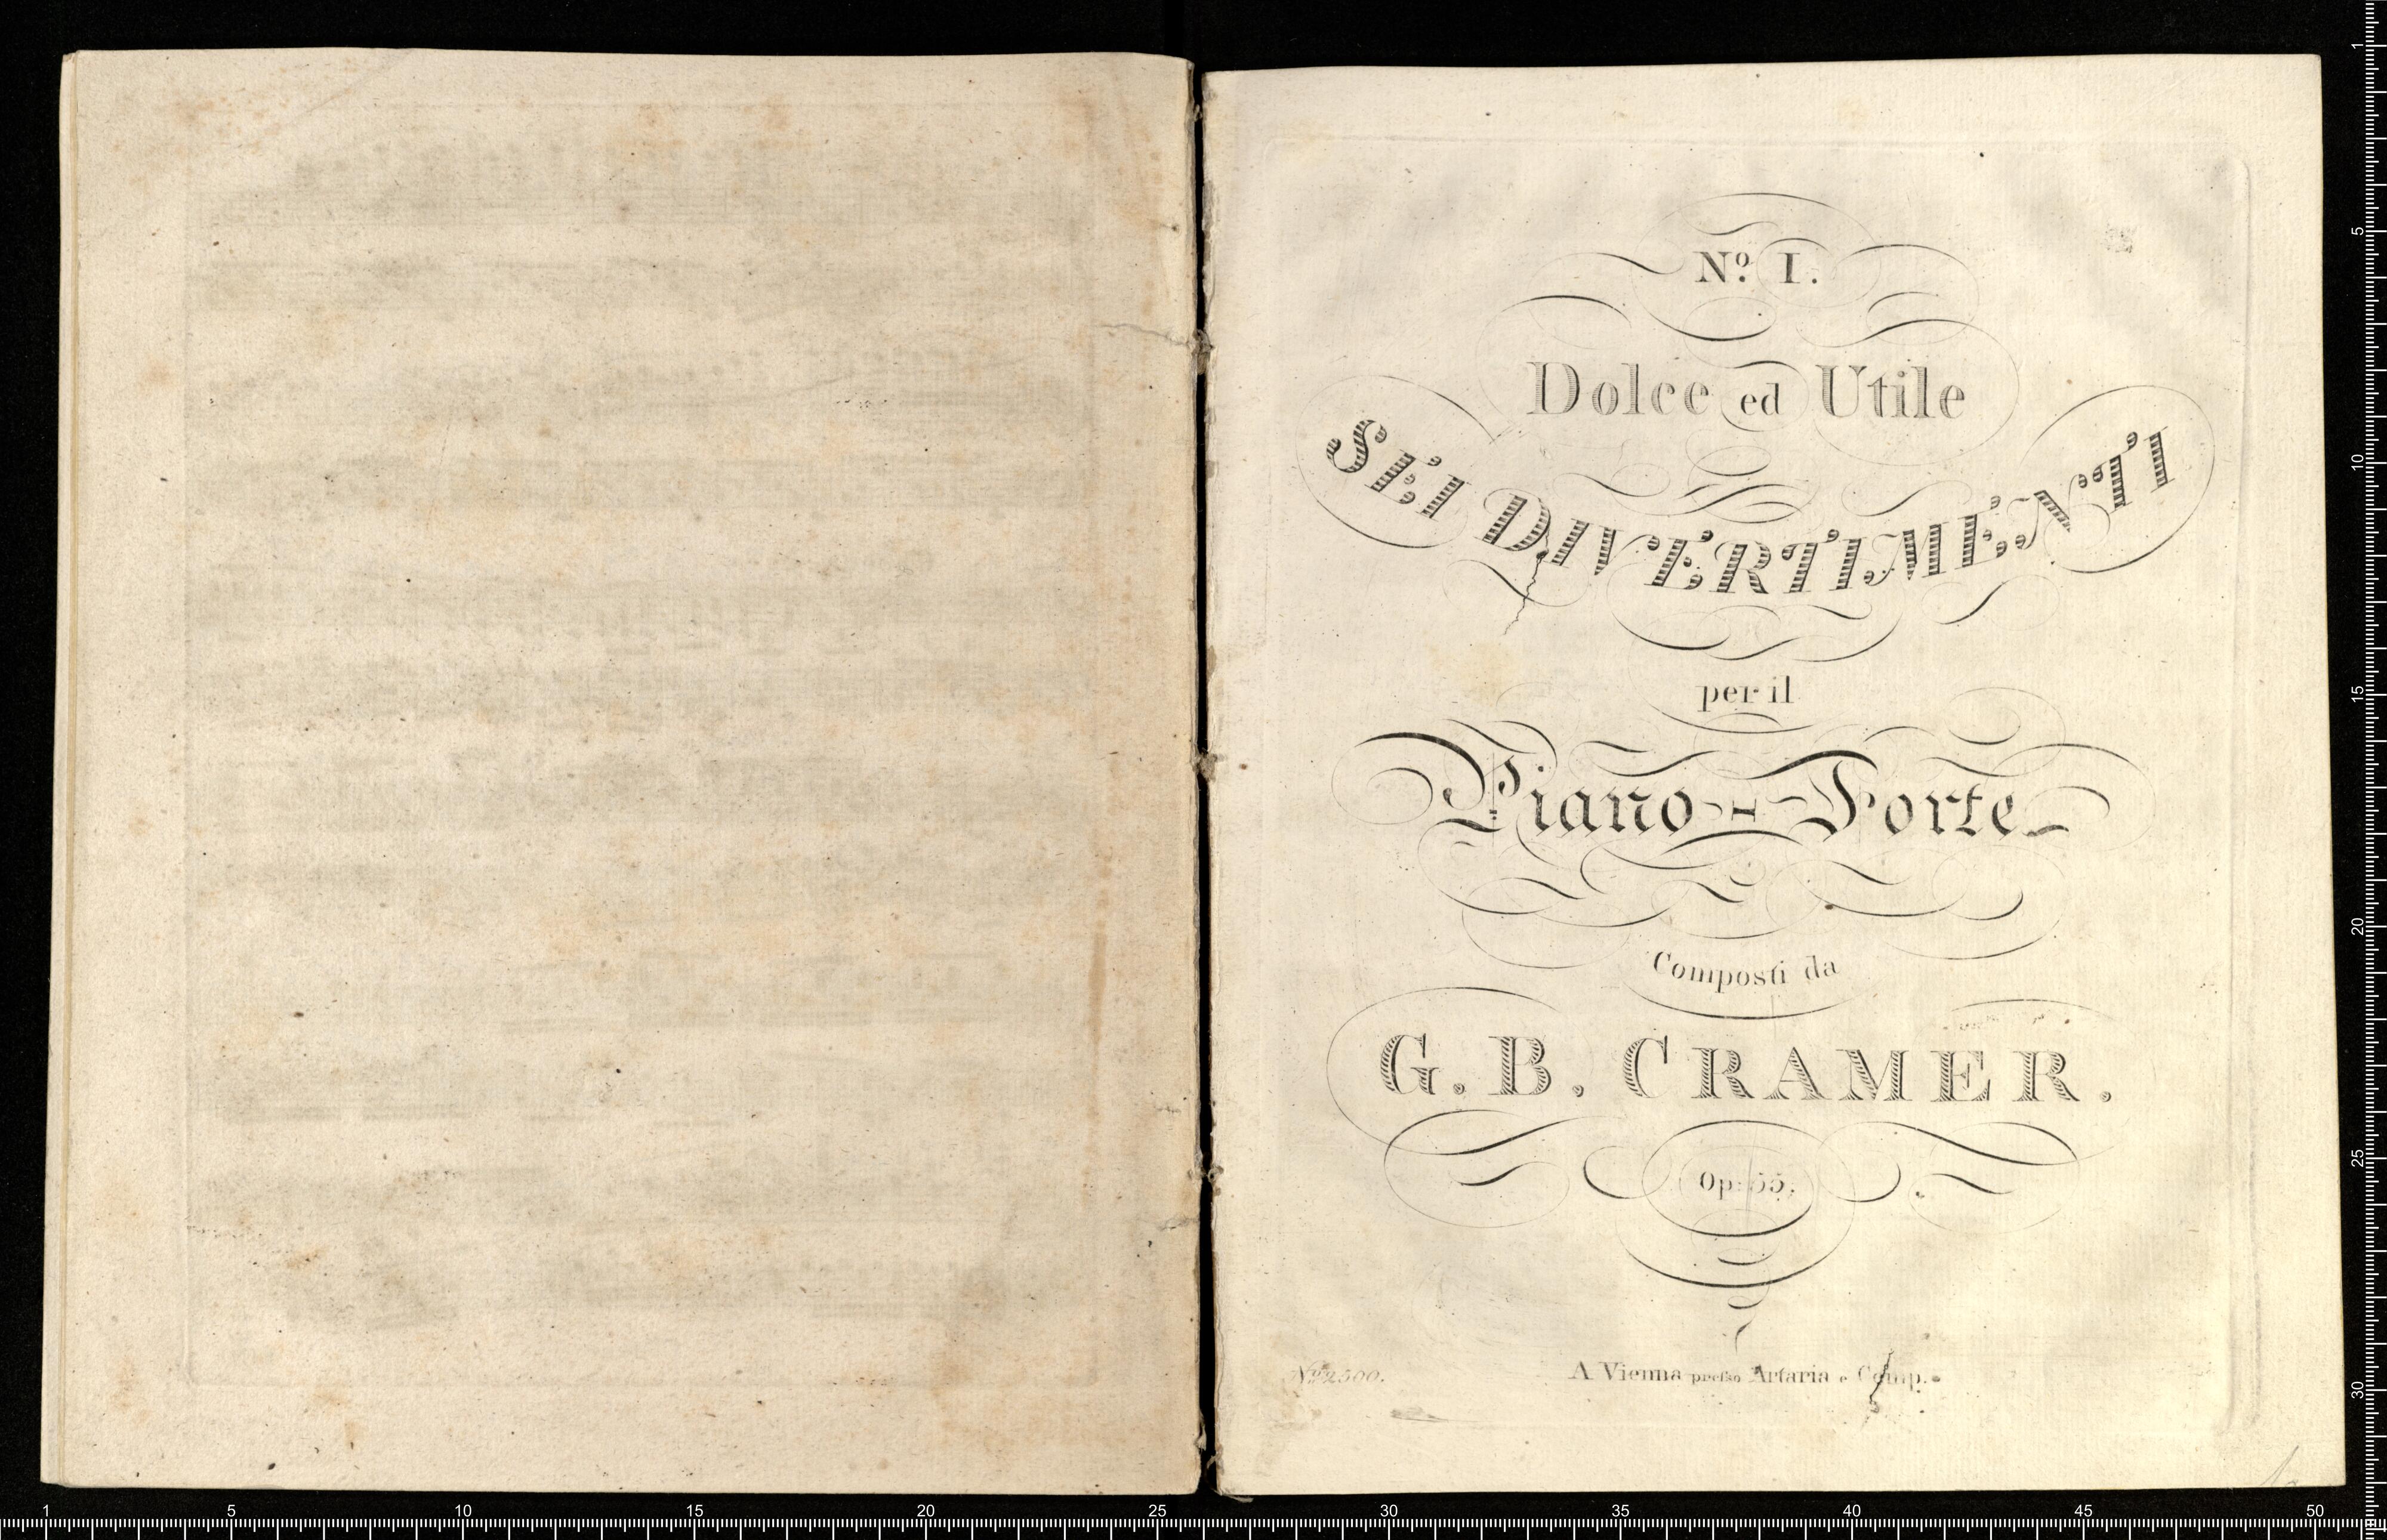 Nº. I.
Dolce ed Utile
SEI DIVERTIMENTI
per il
Piano=Forte
Composti da
G. B. CRAMER.
Op: 55.
Nº. 2500.
A Vienna presso Artaria e Comp.
1
5
10
15
20
25
30
1
5
10
15
20
25
30
35
40
45
50